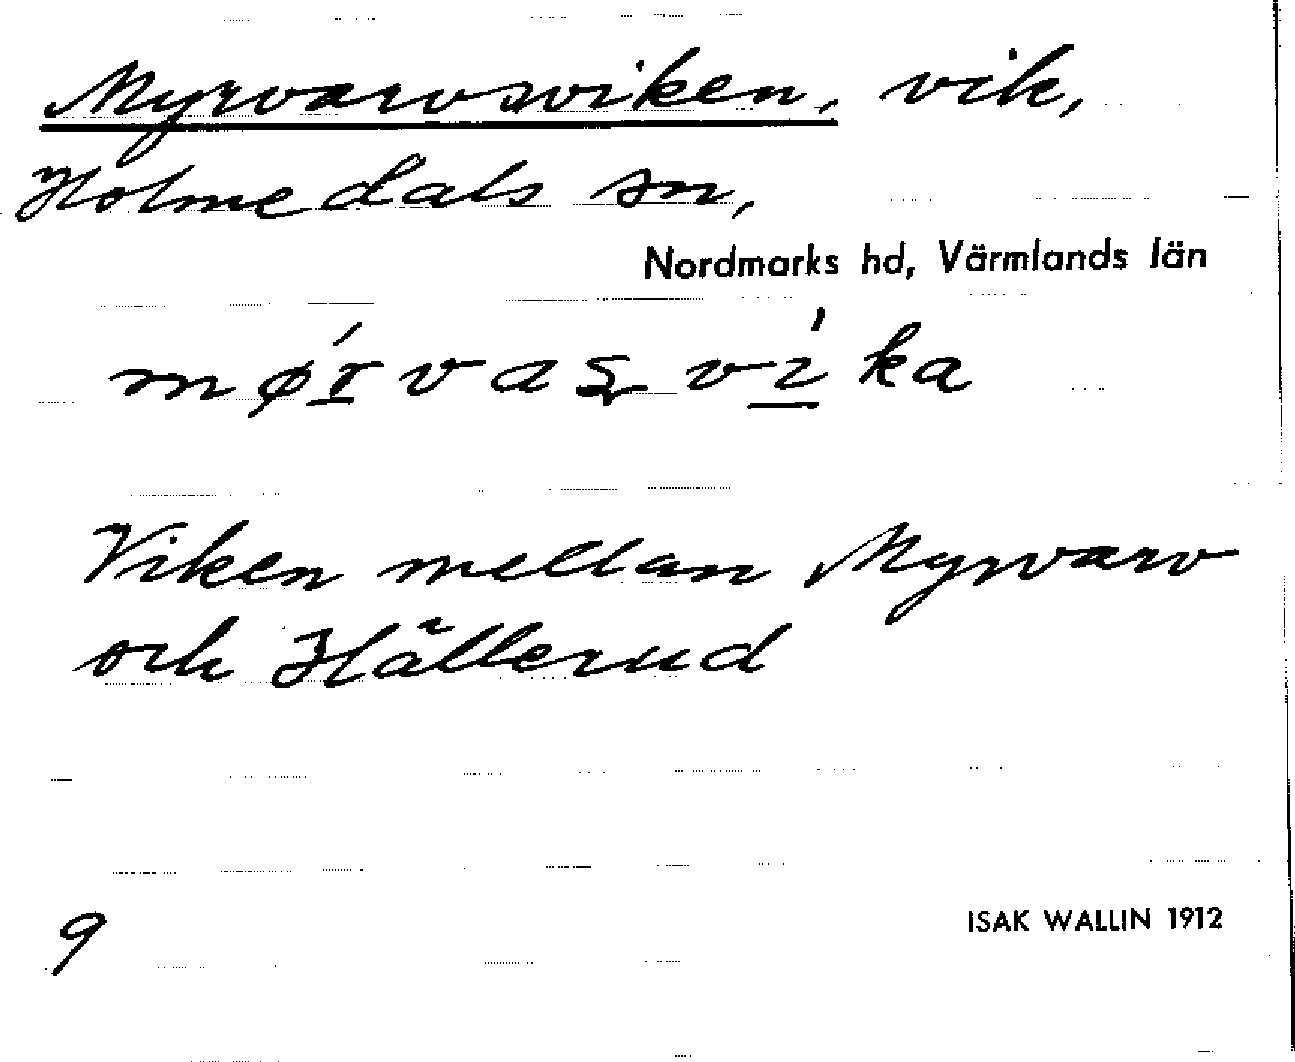 Myrvarvsviken, vik,
Holmedals sn,
Nordmarks hd, Värmlands län
mǿr̲vas̨vı̲́ka
Viken mellan Myrvarv
och Hällerud
9
ISAK WALLIN 1912